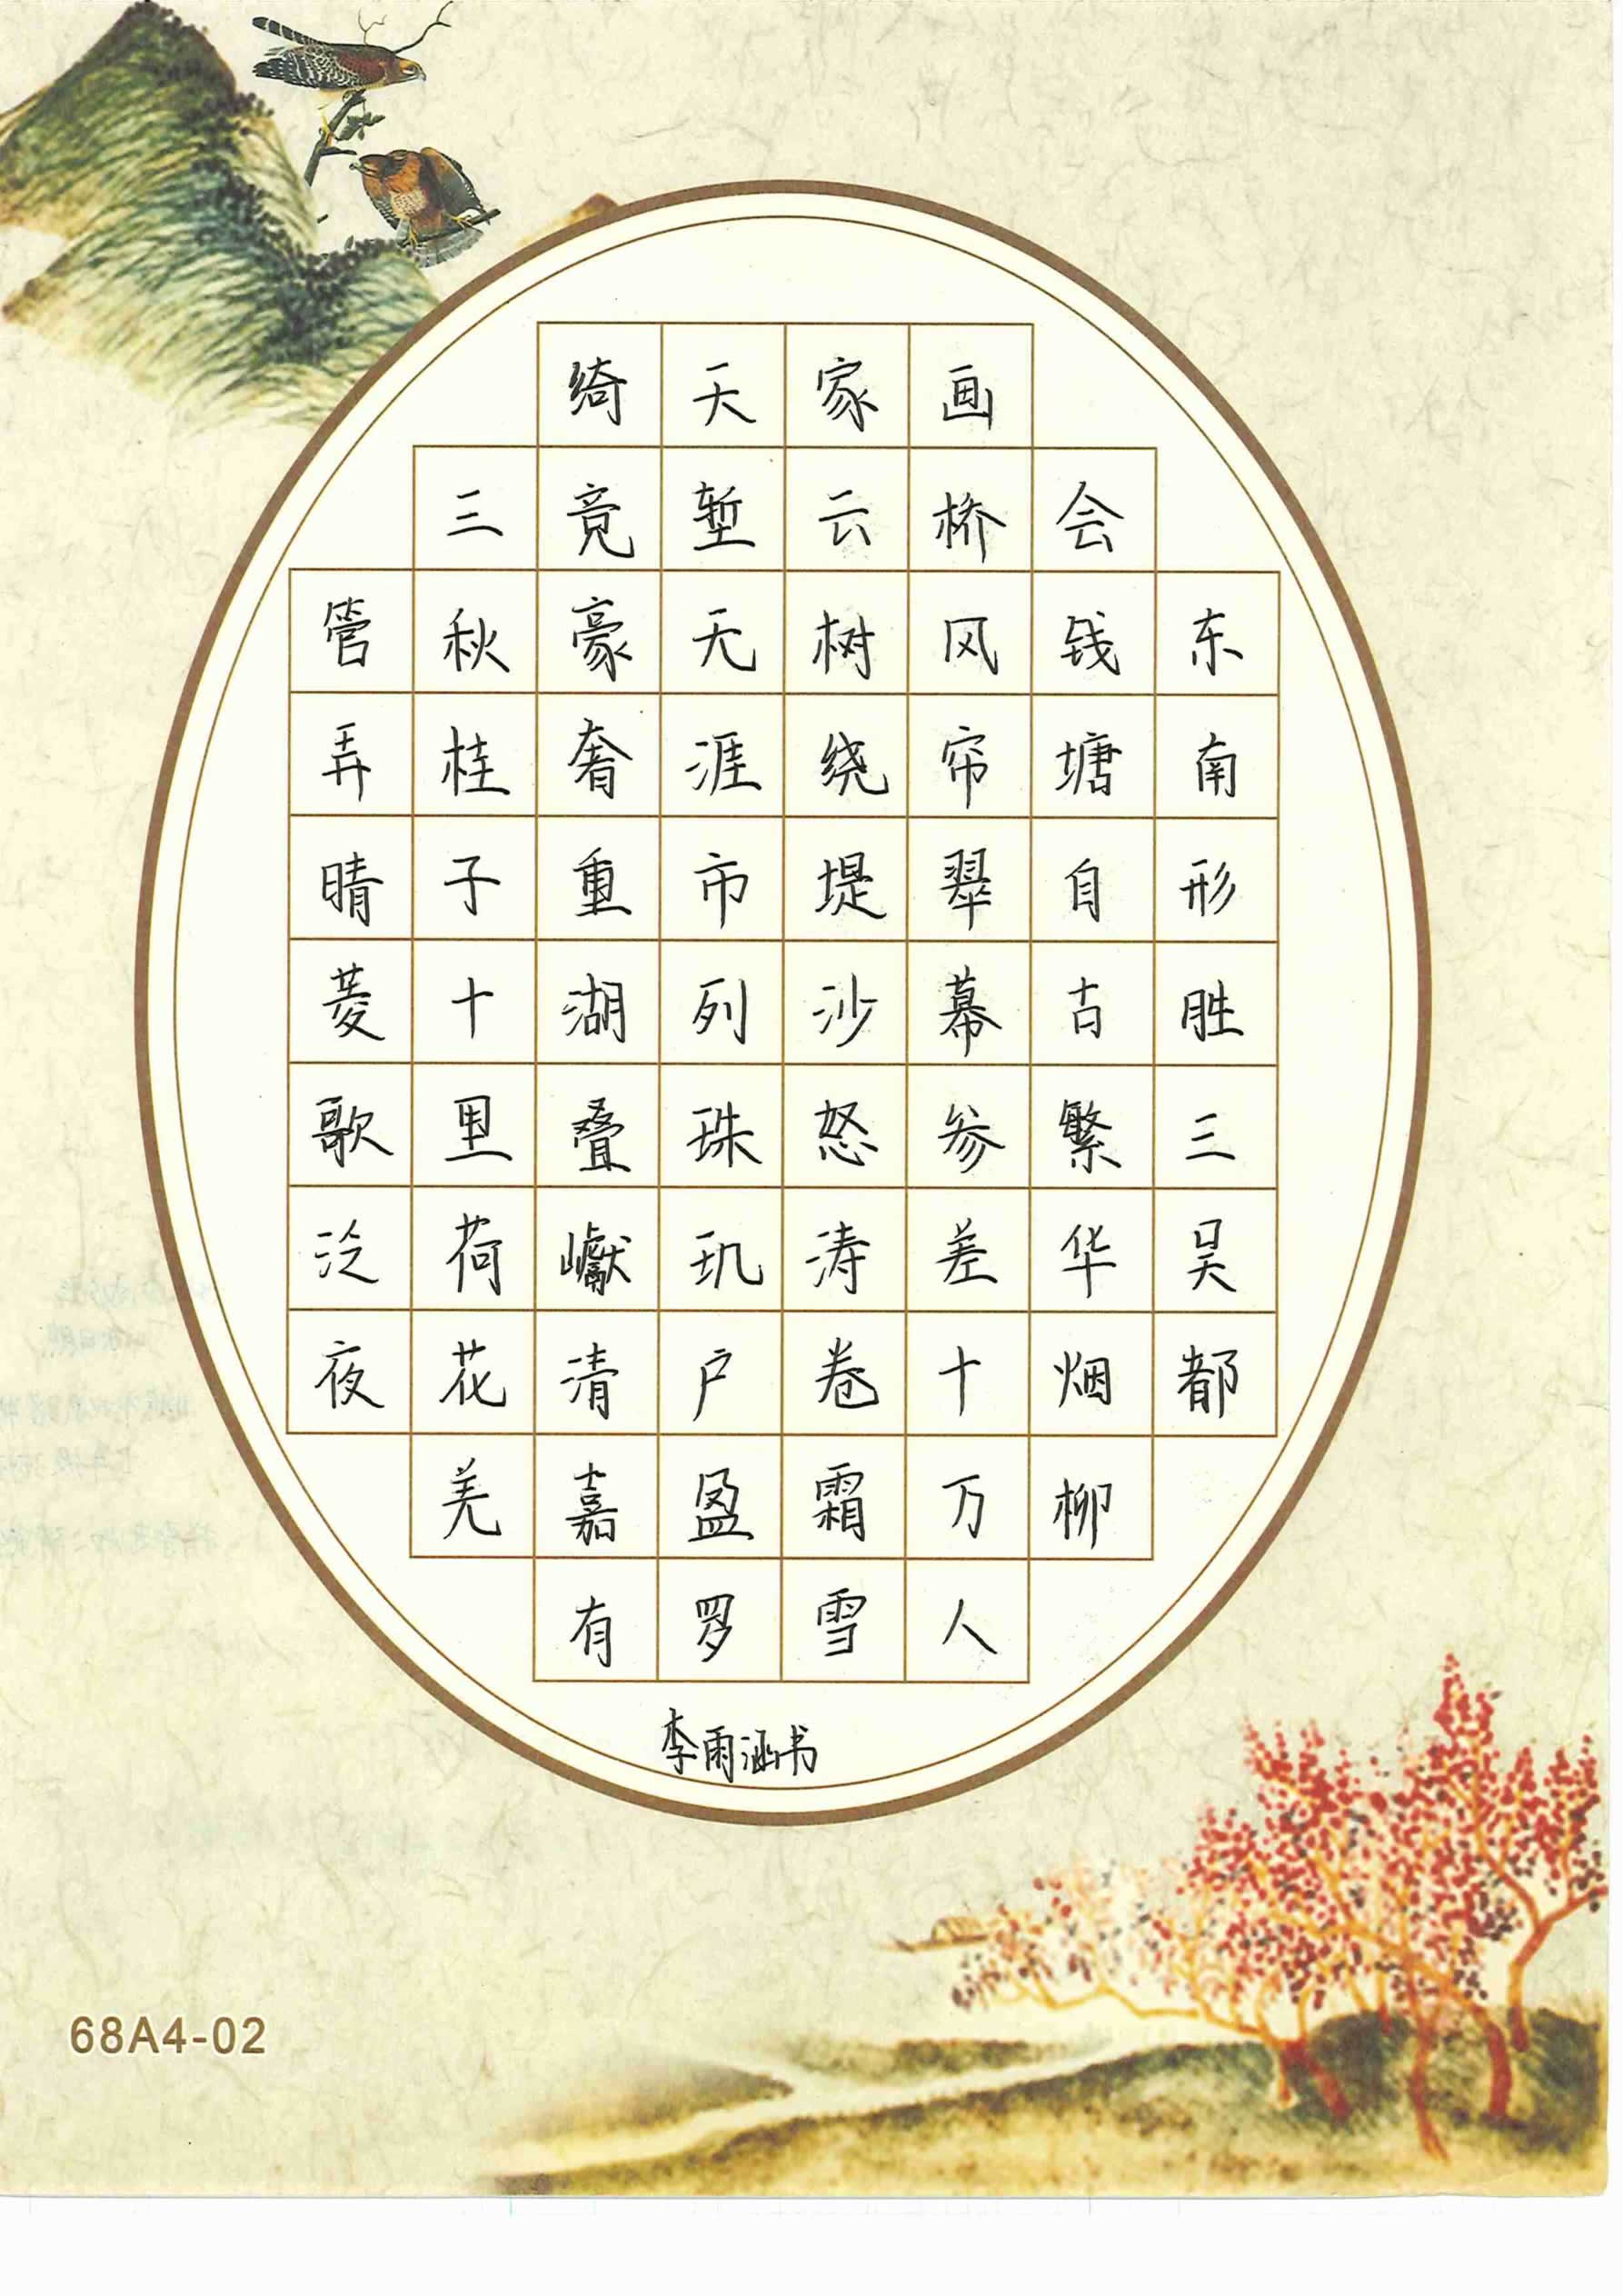 东南形胜三吴都
会钱塘自古繁华烟柳
画桥风帘翠幕参差十万人
家云树绕堤沙怒涛卷霜雪
天堑无涯市列珠玑户盈罗
绮竟豪奢重湖叠巘清嘉有
三秋桂子十里荷花羌
管弄晴菱歌泛夜
李雨涵书
68A4-02